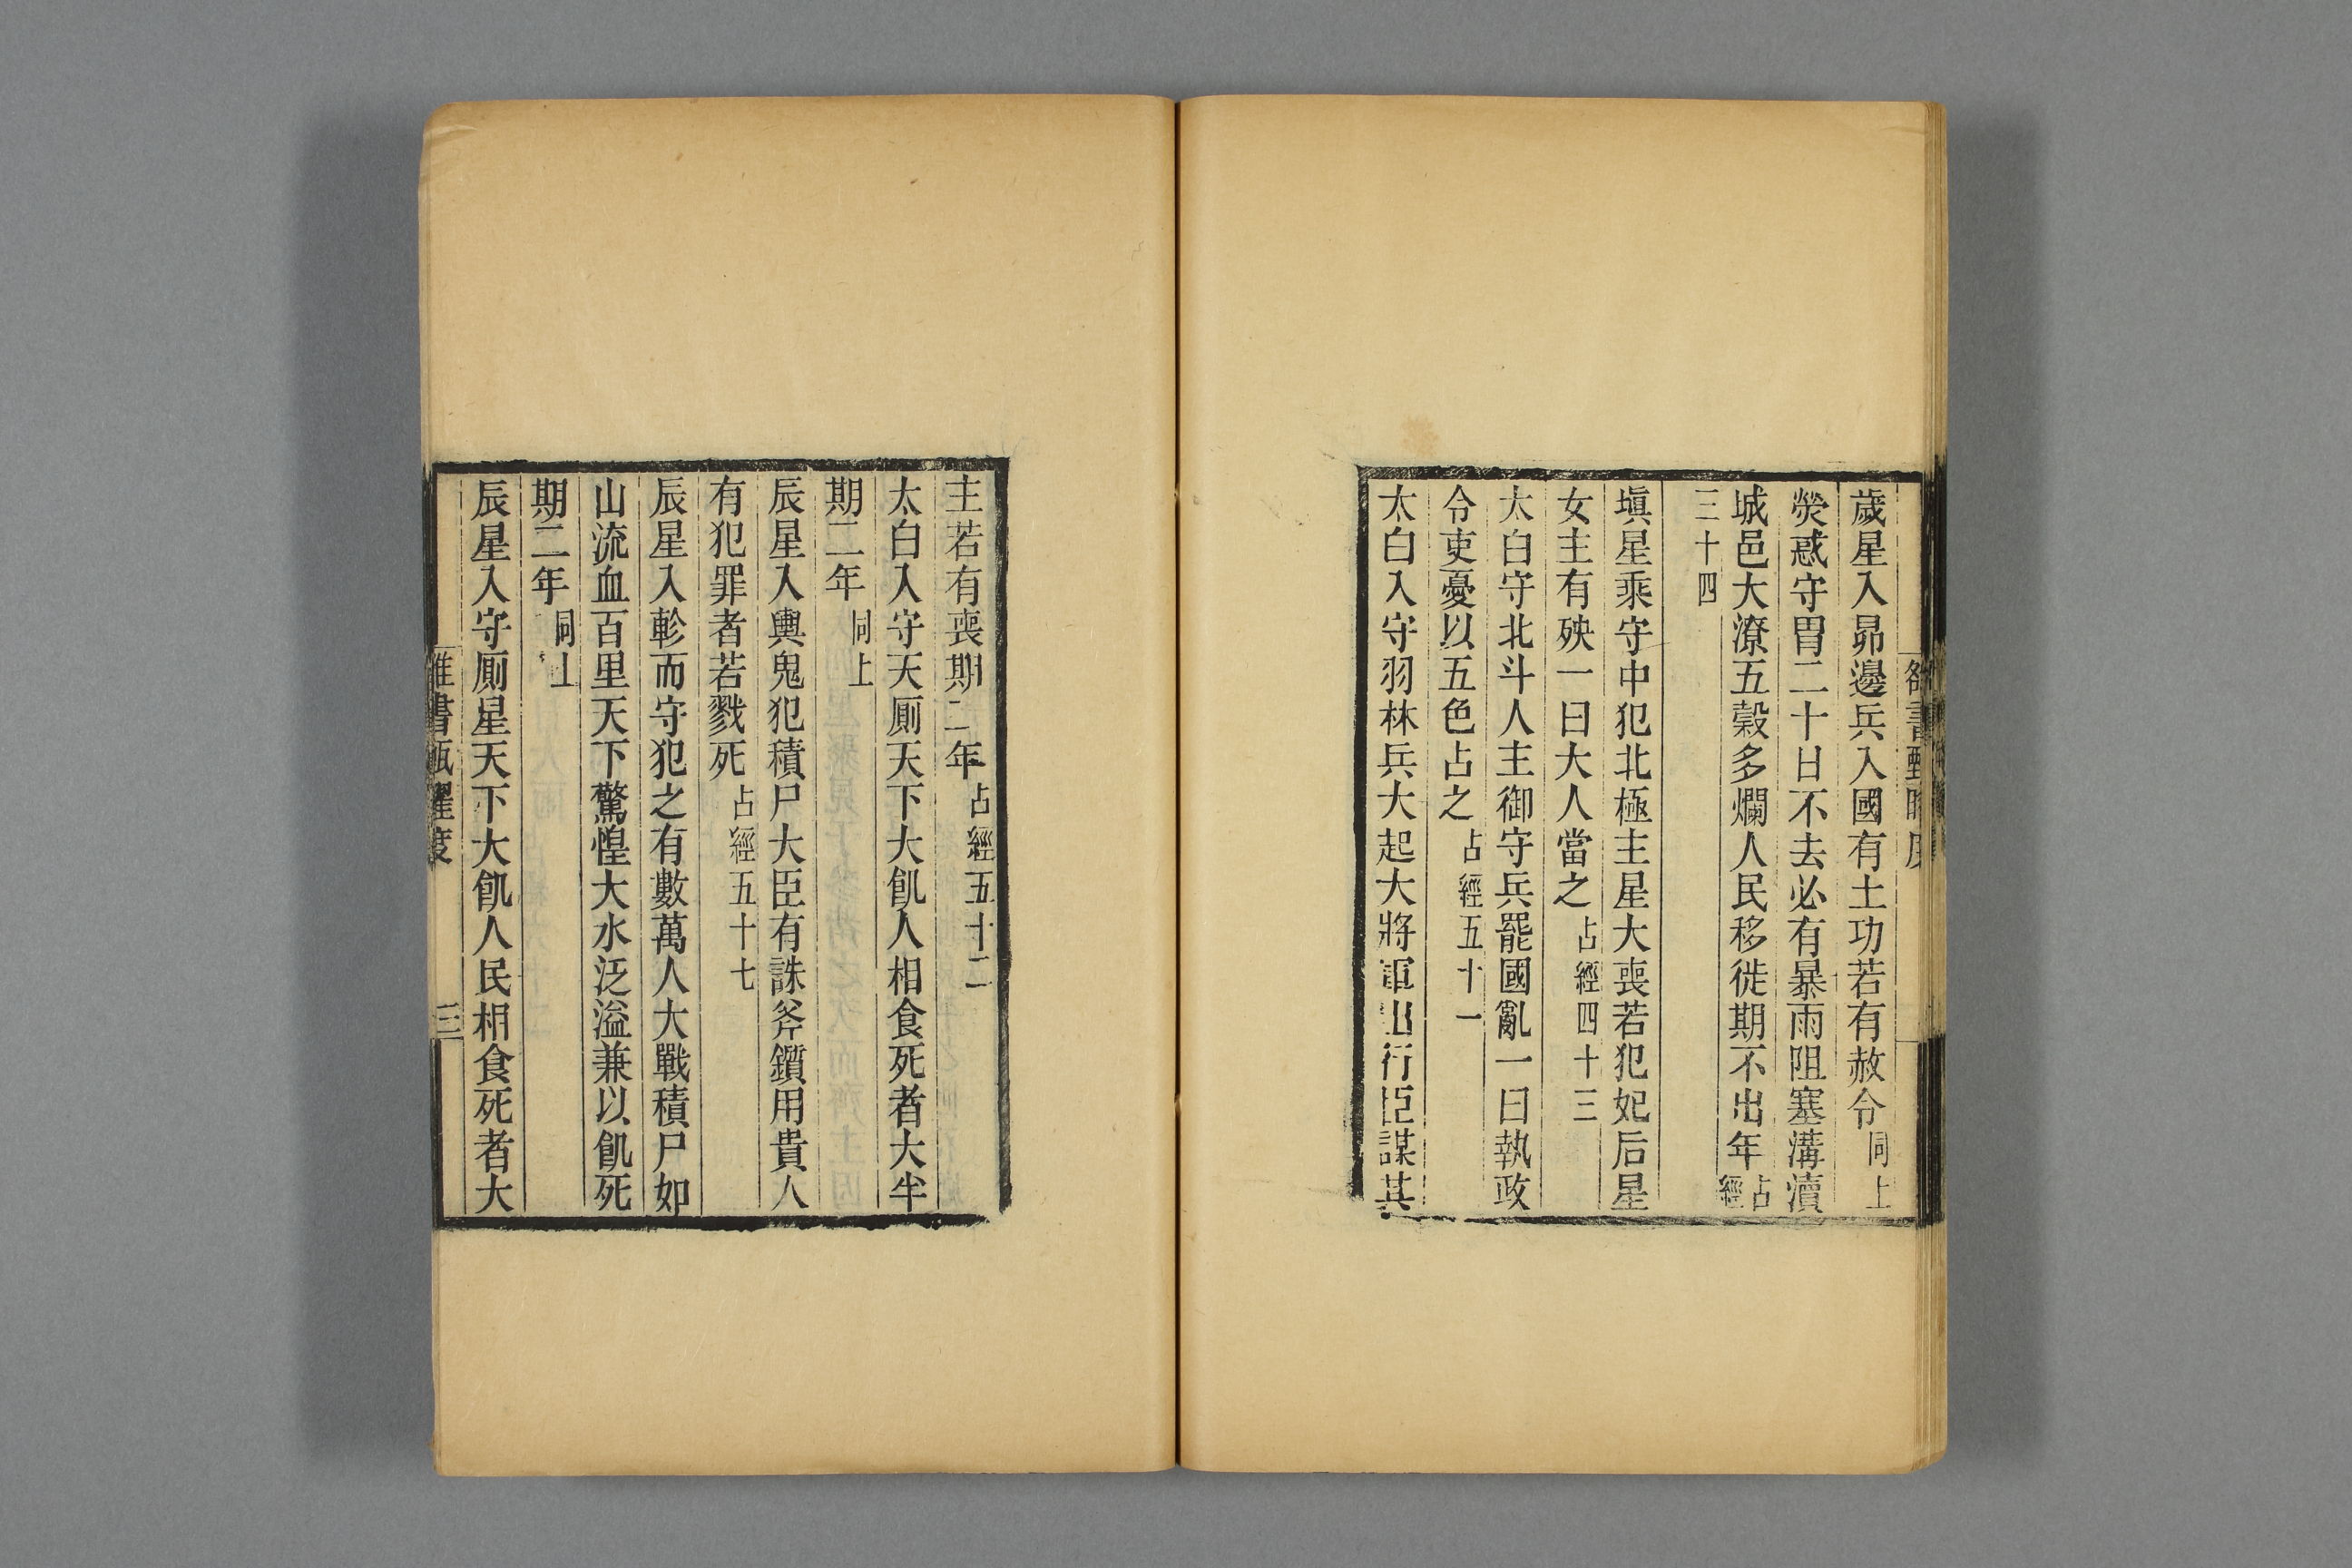 歲星入昴邊兵入國有土功若有赦令同上
熒惑守胃二十日不去必有暴雨阻塞溝瀆
城邑大潦五穀多爛人民移徙期不出年占經
三十四
塡星乘守中犯北極主星大喪若犯妃后星
女主有殃一曰大人當之占經四十三
太白守北斗人主御守兵罷國亂一曰執政
令吏憂以五色占之占經五十一
太白入守羽林兵大起大將軍出行臣謀其
主若有喪期二年占經五十二
太白入守天厠天下大飢人相食死者大半
期二年同上
辰星入輿鬼犯積尸大臣有誅斧鑕用貴人
有犯罪者若戮死占經五十七
辰星入軫而守犯之有數萬人大戰積尸如
山流血百里天下驚惶大水泛溢兼以飢死
期二年同上
辰星入守厠星天下大飢人民相食死者大
雒書甄曜度
三